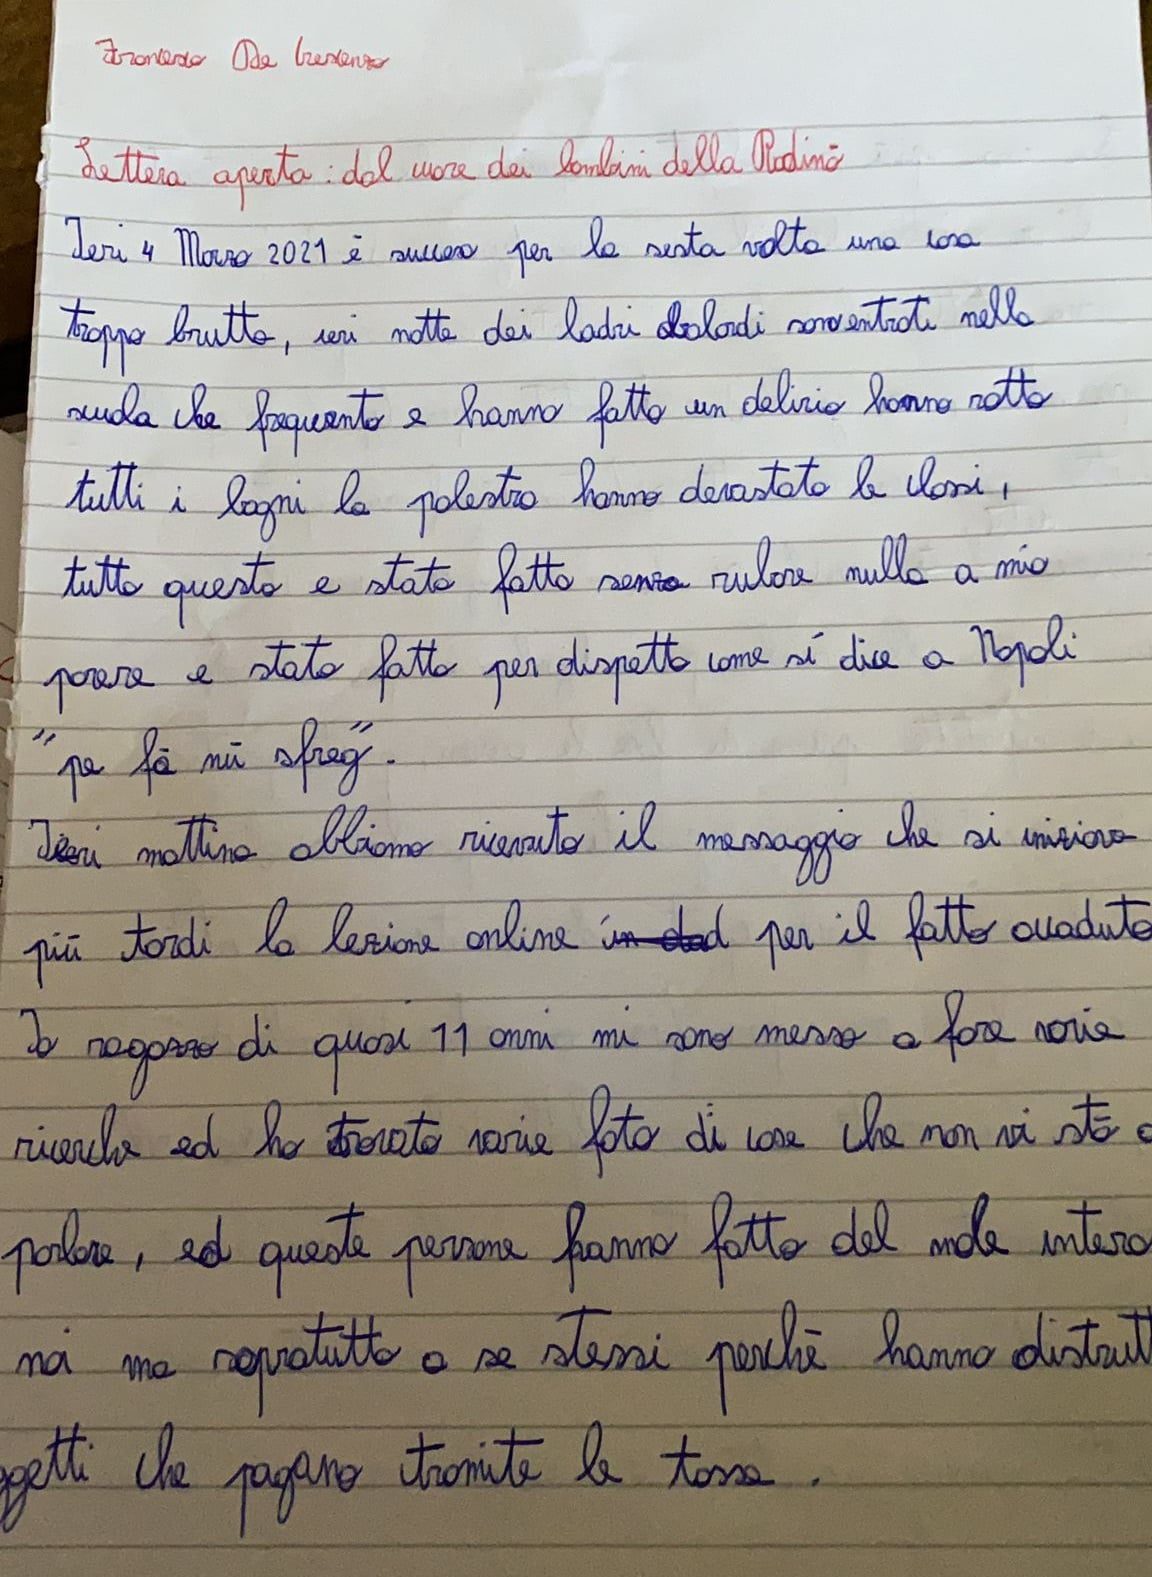 Francesco De Crescenzo
Lettera aperta: dal cuore dei bambini della Rodinò
Ieri 4 Marzo 2021 è succeso per la sesta volta una cosa
troppo brutta, ieri notte dei ladri balordi sono entrati nella
scuola che frequento e hanno fatto un delirio hanno rotto
tutti i bagni la palestra hanno devastato le classi,
tutto questo e stato fatto senza rubare nulla a mio
parere e stato fatto per dispetto come si dice a Napoli
"pe fà nù sfreg".
Ieri mattina abbiamo ricevuto il messaggio che si iniziava
più tardi la lezione online in dad per il fatto accaduto
Io ragazzo di quasi 11 anni mi sono messo a fare varie
ricerche ed ho trovato varie foto di cose che non vi stò a
parlare, ed queste persone hanno fatto del male intero a
noi ma sopratutto a se stessi perchè hanno distrutt
ggetti che pagano tramite le tasse.